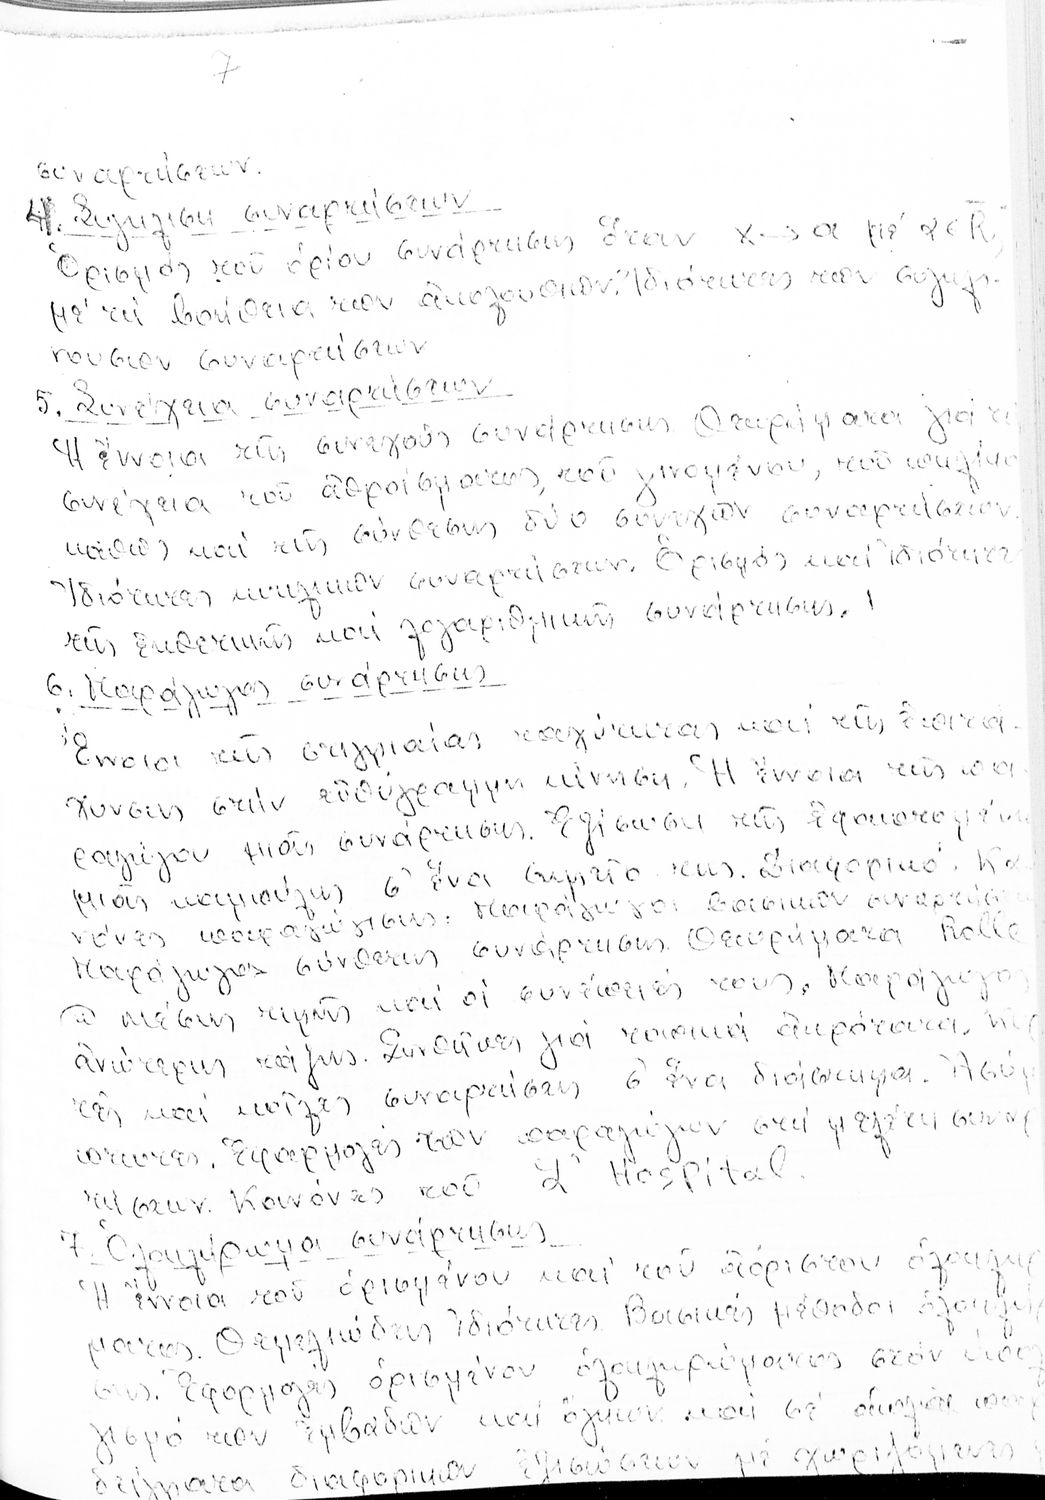 7
συναρτήσεων.
4. Σύγκλιση συναρτήσεων
Ὁρισμός τοῦ ὁρίου συνάρτησης ὅταν x → α μέ α ∈ R̄,
μέ τή βοήθεια των ἀκολουθιῶν. Ἰδιότητες των συγκλι-
νουσων συναρτήσεων
5. Συνέχεια συναρτήσεων
Ἡ ἔννοια τῆς συνεχοῦς συνάρτησης. Θεωρήματα γιά τή
συνέχεια τοῦ ἀθροίσματος, τοῦ γινομένου, τοῦ πηλίκο
καθώς καί τῆς σύνθεσης δύο συνεχῶν συναρτήσεων.
Ἰδιότητες κυκλικῶν συναρτήσεων. Ὁρισμός καί ἰδιότητε
τῆς ἐκθετικῆς καί λογαριθμικῆς συνάρτησης.
6. Παράγωγος συνάρτησης
Ἔννοια τῆς στιγμιαίας ταχύτητας καί τῆς ἐπιτά-
χυνσης στήν εὐθύγραμμη κίνηση. Ἡ ἔννοια τῆς πα
ραγώγου μιᾶς συνάρτησης. Ἐξίσωση τῆς ἐφαπτομένη
μιᾶς καμπύλης σ' ἕνα σημεῖο της. Διαφορικό. Κα
νόνες παραγώγισης. Παράγωγοι βασικῶν συναρτήσε
Παράγωγος σύνθετης συνάρτησης. Θεωρήματα Rolle
μέσης τιμῆς καί οἱ συνέπειές τους. Παράγωγος
ἀνώτερης τάξης. Συνθῆκες γιά τοπικά ἀκρότατα. Κυρ
τές καί κοῖλες συναρτήσεις σ' ἕνα διάστημα. Ἀσύμ
πτωτες. Ἐφαρμογές των παραγώγων στή μελέτη συναρ
τήσεων. Κανόνες τοῦ L' Hospital.
7. Ὁλοκλήρωμα συνάρτησης
Ἡ ἔννοια τοῦ ὁρισμένου καί τοῦ ἀόριστου ὁλοκληρ
ματος. Θεμελιώδεις ἰδιότητες. Βασικές μέθοδοι ὁλοκλήρ
σης. Ἐφαρμογές ὁρισμένου ὁλοκληρώματος στόν ὑπολ
γισμό των ἐμβαδῶν καί ὄγκων καί σέ ἁπλά παρ
δείγματα διαφορικῶν ἐξισώσεων μέ χωριζόμενες